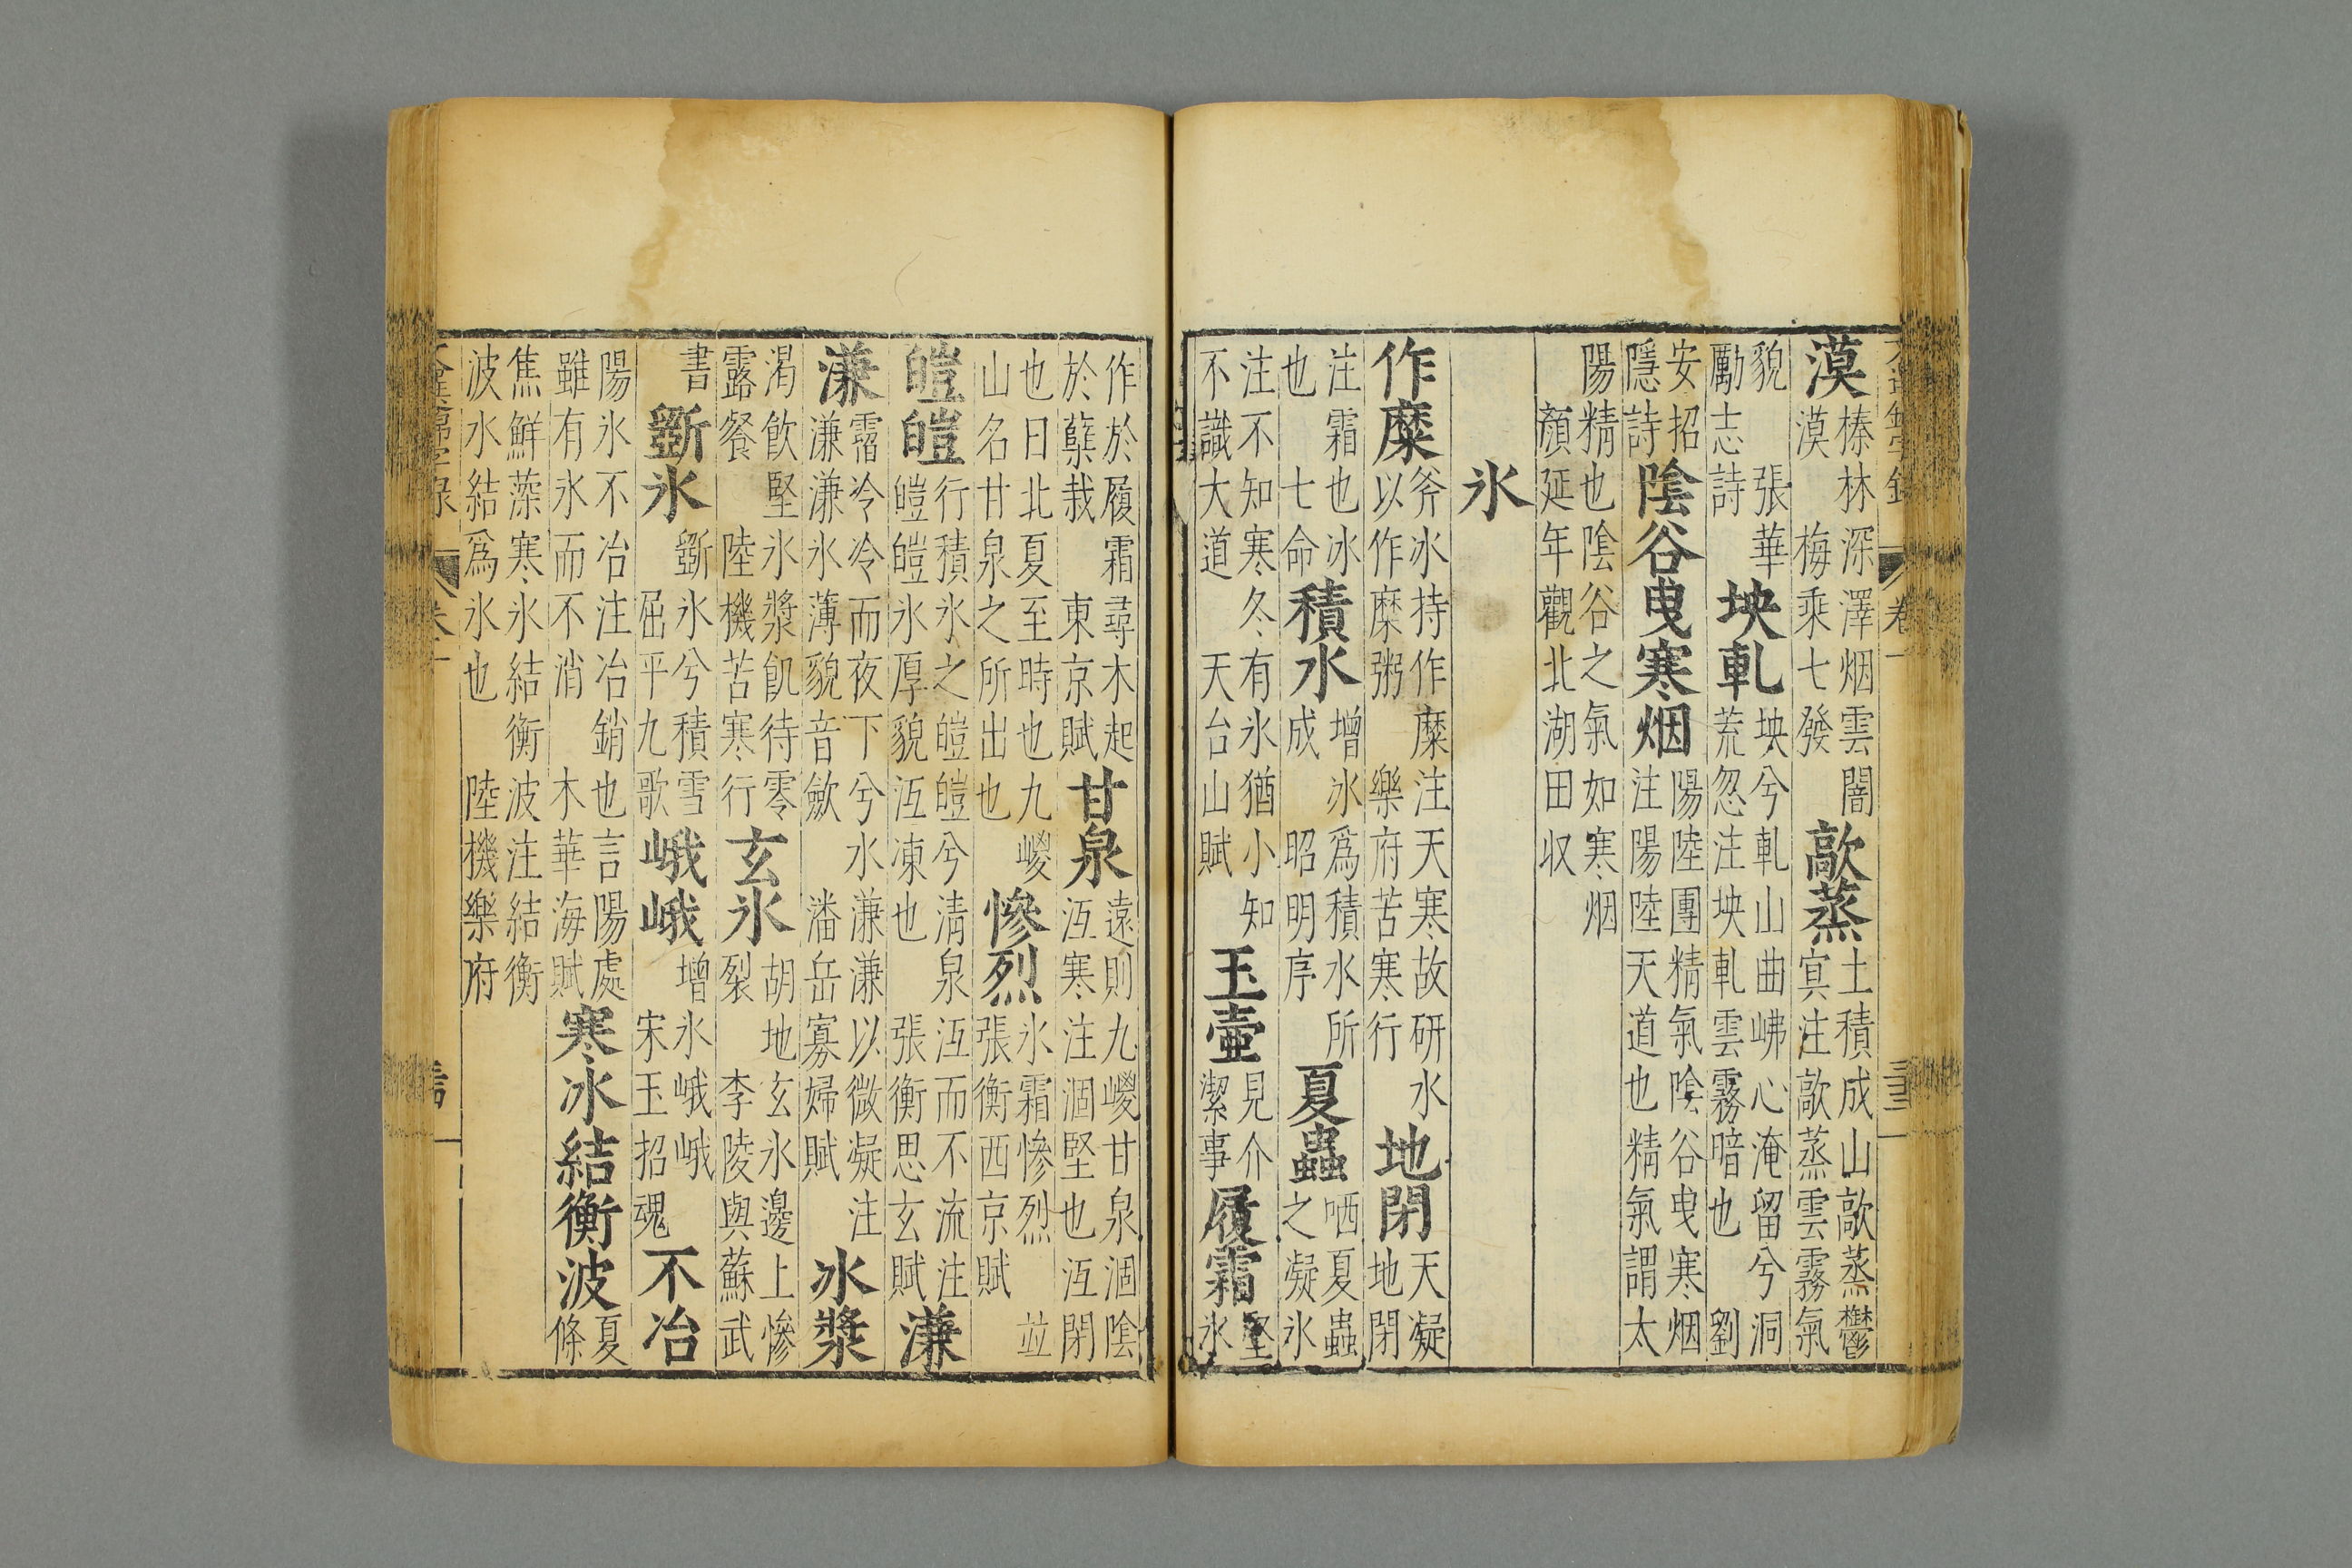 漠榛林深澤烟雲闇漠 梅乘七發 歊蒸土積成山歊蒸鬱冥注歊蒸雲霧氣
貌 張華勵志詩 坱軋坱兮軋山曲岪心淹留兮洞荒忽注坱軋雲霧暗也 劉
安招隱詩 陰谷曳寒烟陽陸團精氣陰谷曳寒烟注陽陸天道也精氣謂太
陽精也陰谷之氣如寒烟 顏延年觀北湖田収
氷
作糜斧氷持作糜注天寒故研水以作糜粥 樂府苦寒行 地閉天凝地閉
注霜也冰也 七命 積水增冰爲積水所成 昭明序 夏蟲哂夏蟲之凝氷
注不知寒冬有氷猶小知不識大道 天台山賦 玉壺見介潔事 履霜堅氷
作於履霜尋木起於櫱栽 東京賦 甘泉遠則九嵕甘泉涸陰沍寒注涸堅也沍閉
也曰北夏至時也九嵕山名甘泉之所出也 慘烈氷霜慘烈 並張衡西京賦
皚皚行積氷之皚皚兮淸泉沍而不流注皚皚氷厚貌沍凍也 張衡思玄賦 溓
溓霤冷冷而夜下兮水溓溓以微凝注溓溓氷薄貌音歛 潘岳寡婦賦 氷漿
渴飮堅氷漿飢待零露餐 陸機苦寒行 玄氷胡地玄氷邊上慘裂 李陵與蘇武
書 斵氷斵氷兮積雪 屈平九歌 峨峨增氷峨峨 宋玉招魂 不冶
陽氷不冶注冶銷也言陽處雖有氷而不消 木華海賦 寒冰結衡波夏條
焦鮮藻寒氷結衡波注結衡波水結爲氷也 陸機樂府